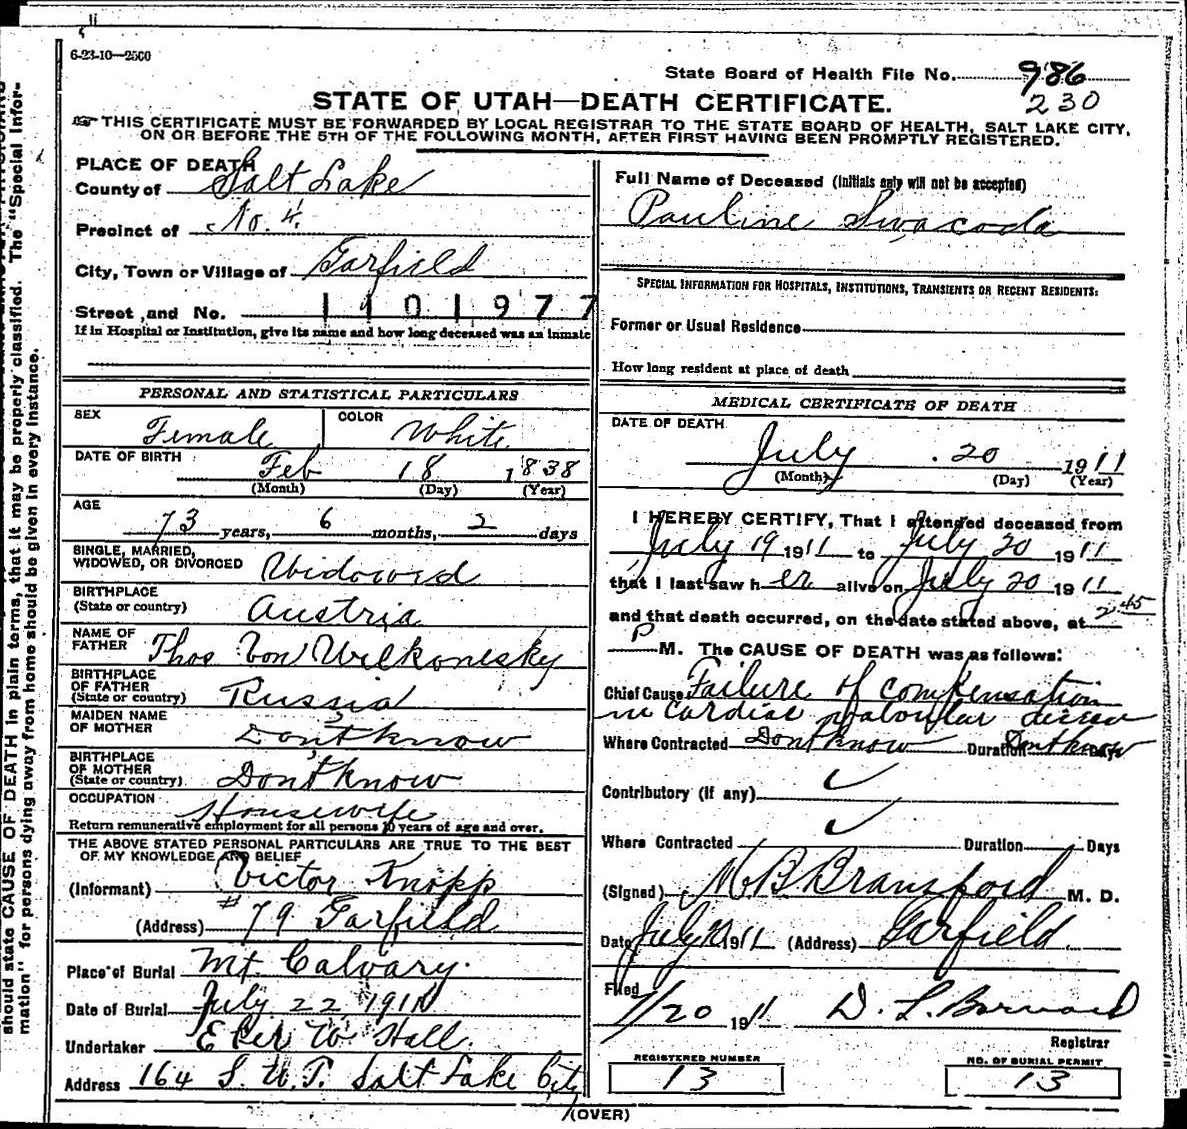 6-23-10—2500
State Board of Health File No. 986
230
STATE OF UTAH—DEATH CERTIFICATE.
THIS CERTIFICATE MUST BE FORWARDED BY LOCAL REGISTRAR TO THE STATE BOARD OF HEALTH, SALT LAKE CITY,
ON OR BEFORE THE 5TH OF THE FOLLOWING MONTH, AFTER FIRST HAVING BEEN PROMPTLY REGISTERED.
should state CAUSE OF DEATH in plain terms, that it may be properly classified. The "Special Infor-
mation" for persons dying away from home should be given in every instance.
PLACE OF DEATH
County of Salt Lake
Precinct of No. 4.
City, Town or Village of Garfield
Street and No. 1101977
If in Hospital or Institution, give its name and how long deceased was an inmate
PERSONAL AND STATISTICAL PARTICULARS
SEX Female COLOR White
DATE OF BIRTH Feb 18 1838
(Month) (Day) (Year)
AGE
73 years, 6 months, 2 days
SINGLE, MARRIED,
WIDOWED, OR DIVORCED Widowed
BIRTHPLACE
(State or country) Austria
NAME OF
FATHER Thos Von Wilkonesky
BIRTHPLACE
OF FATHER
(State or country) Russia
MAIDEN NAME
OF MOTHER Don't know
BIRTHPLACE
OF MOTHER
(State or country) Don't know
OCCUPATION Housewife
Return remunerative employment for all persons 10 years of age and over.
THE ABOVE STATED PERSONAL PARTICULARS ARE TRUE TO THE BEST
OF MY KNOWLEDGE AND BELIEF
(Informant) Victor Knopp
(Address) #79 Garfield
Place of Burial Mt. Calvary.
Date of Burial July 22 1911
Undertaker Eber W. Hall.
Address 164 S. W. T. Salt Lake City
Full Name of Deceased (Initials only will not be accepted)
Pauline Swacoda
SPECIAL INFORMATION FOR HOSPITALS, INSTITUTIONS, TRANSIENTS OR RECENT RESIDENTS:
Former or Usual Residence
How long resident at place of death
MEDICAL CERTIFICATE OF DEATH
DATE OF DEATH
July 20 1911
(Month) (Day) (Year)
I HEREBY CERTIFY, That I attended deceased from
July 19 1911 to July 20 1911
that I last saw her alive on July 20 1911
and that death occurred, on the date stated above, at 2 45
P M. The CAUSE OF DEATH was as follows:
Chief Cause Failure of compensation
in cardiac valvular disease
Where Contracted Dont know Duration Dont know Days
Contributory (if any)
Where Contracted Duration Days
(Signed) M. B. Bransford M. D.
Date July 20 1911 (Address) Garfield.
Filed
7/20 1911 D. L. Barnard
Registrar
REGISTERED NUMBER
13
NO. OF BURIAL PERMIT
13
(OVER)